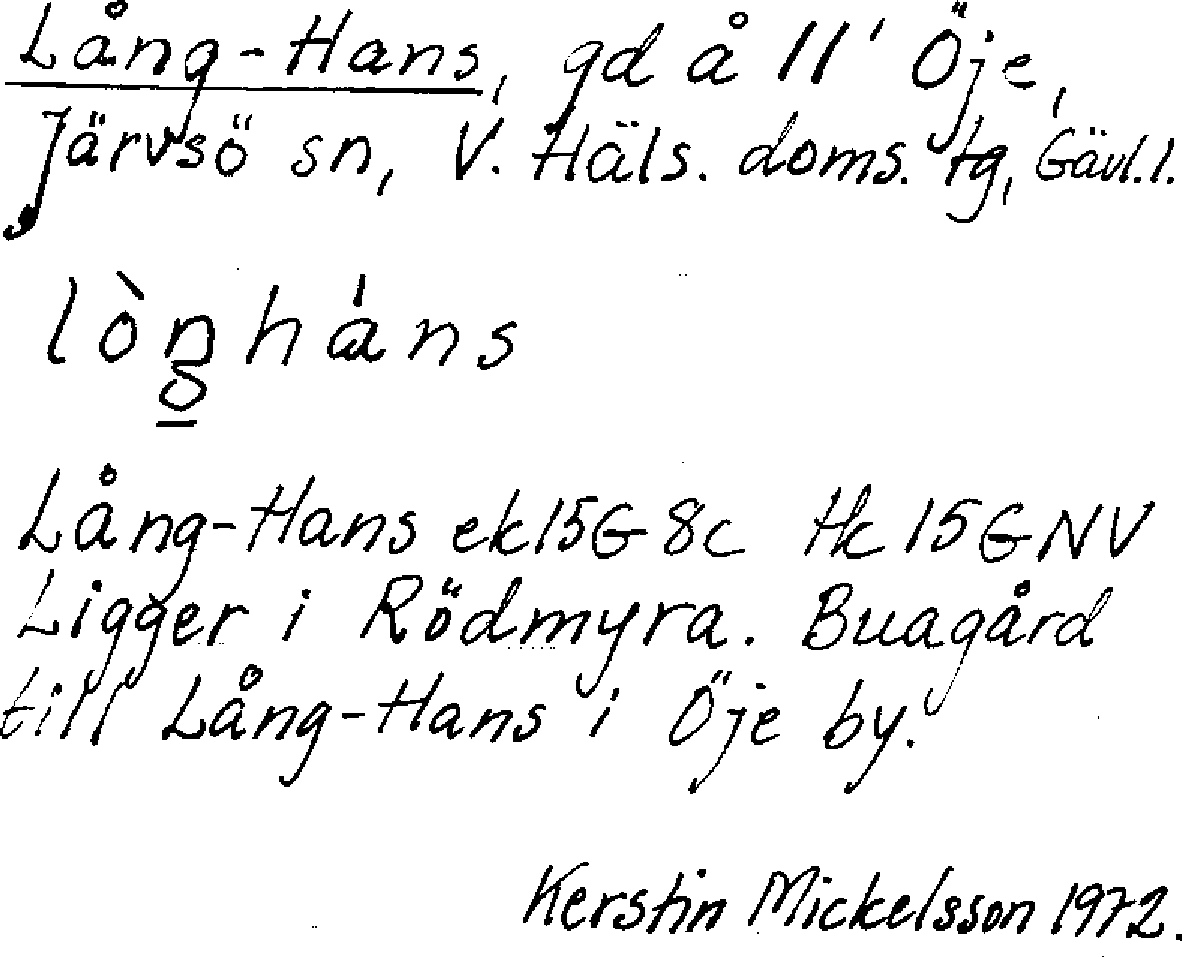 Lång-Hans, gd å 11' Öje,
Järvsö sn, V. Häls. doms. tg, Gävl.l.
lòn͟ghάns
Lång-Hans ek 15G 8c Hk 15 G NV
Ligger i Rödmyra. Buagård
till Lång-Hans i Öje by.
Kerstin Mickelsson 1972.